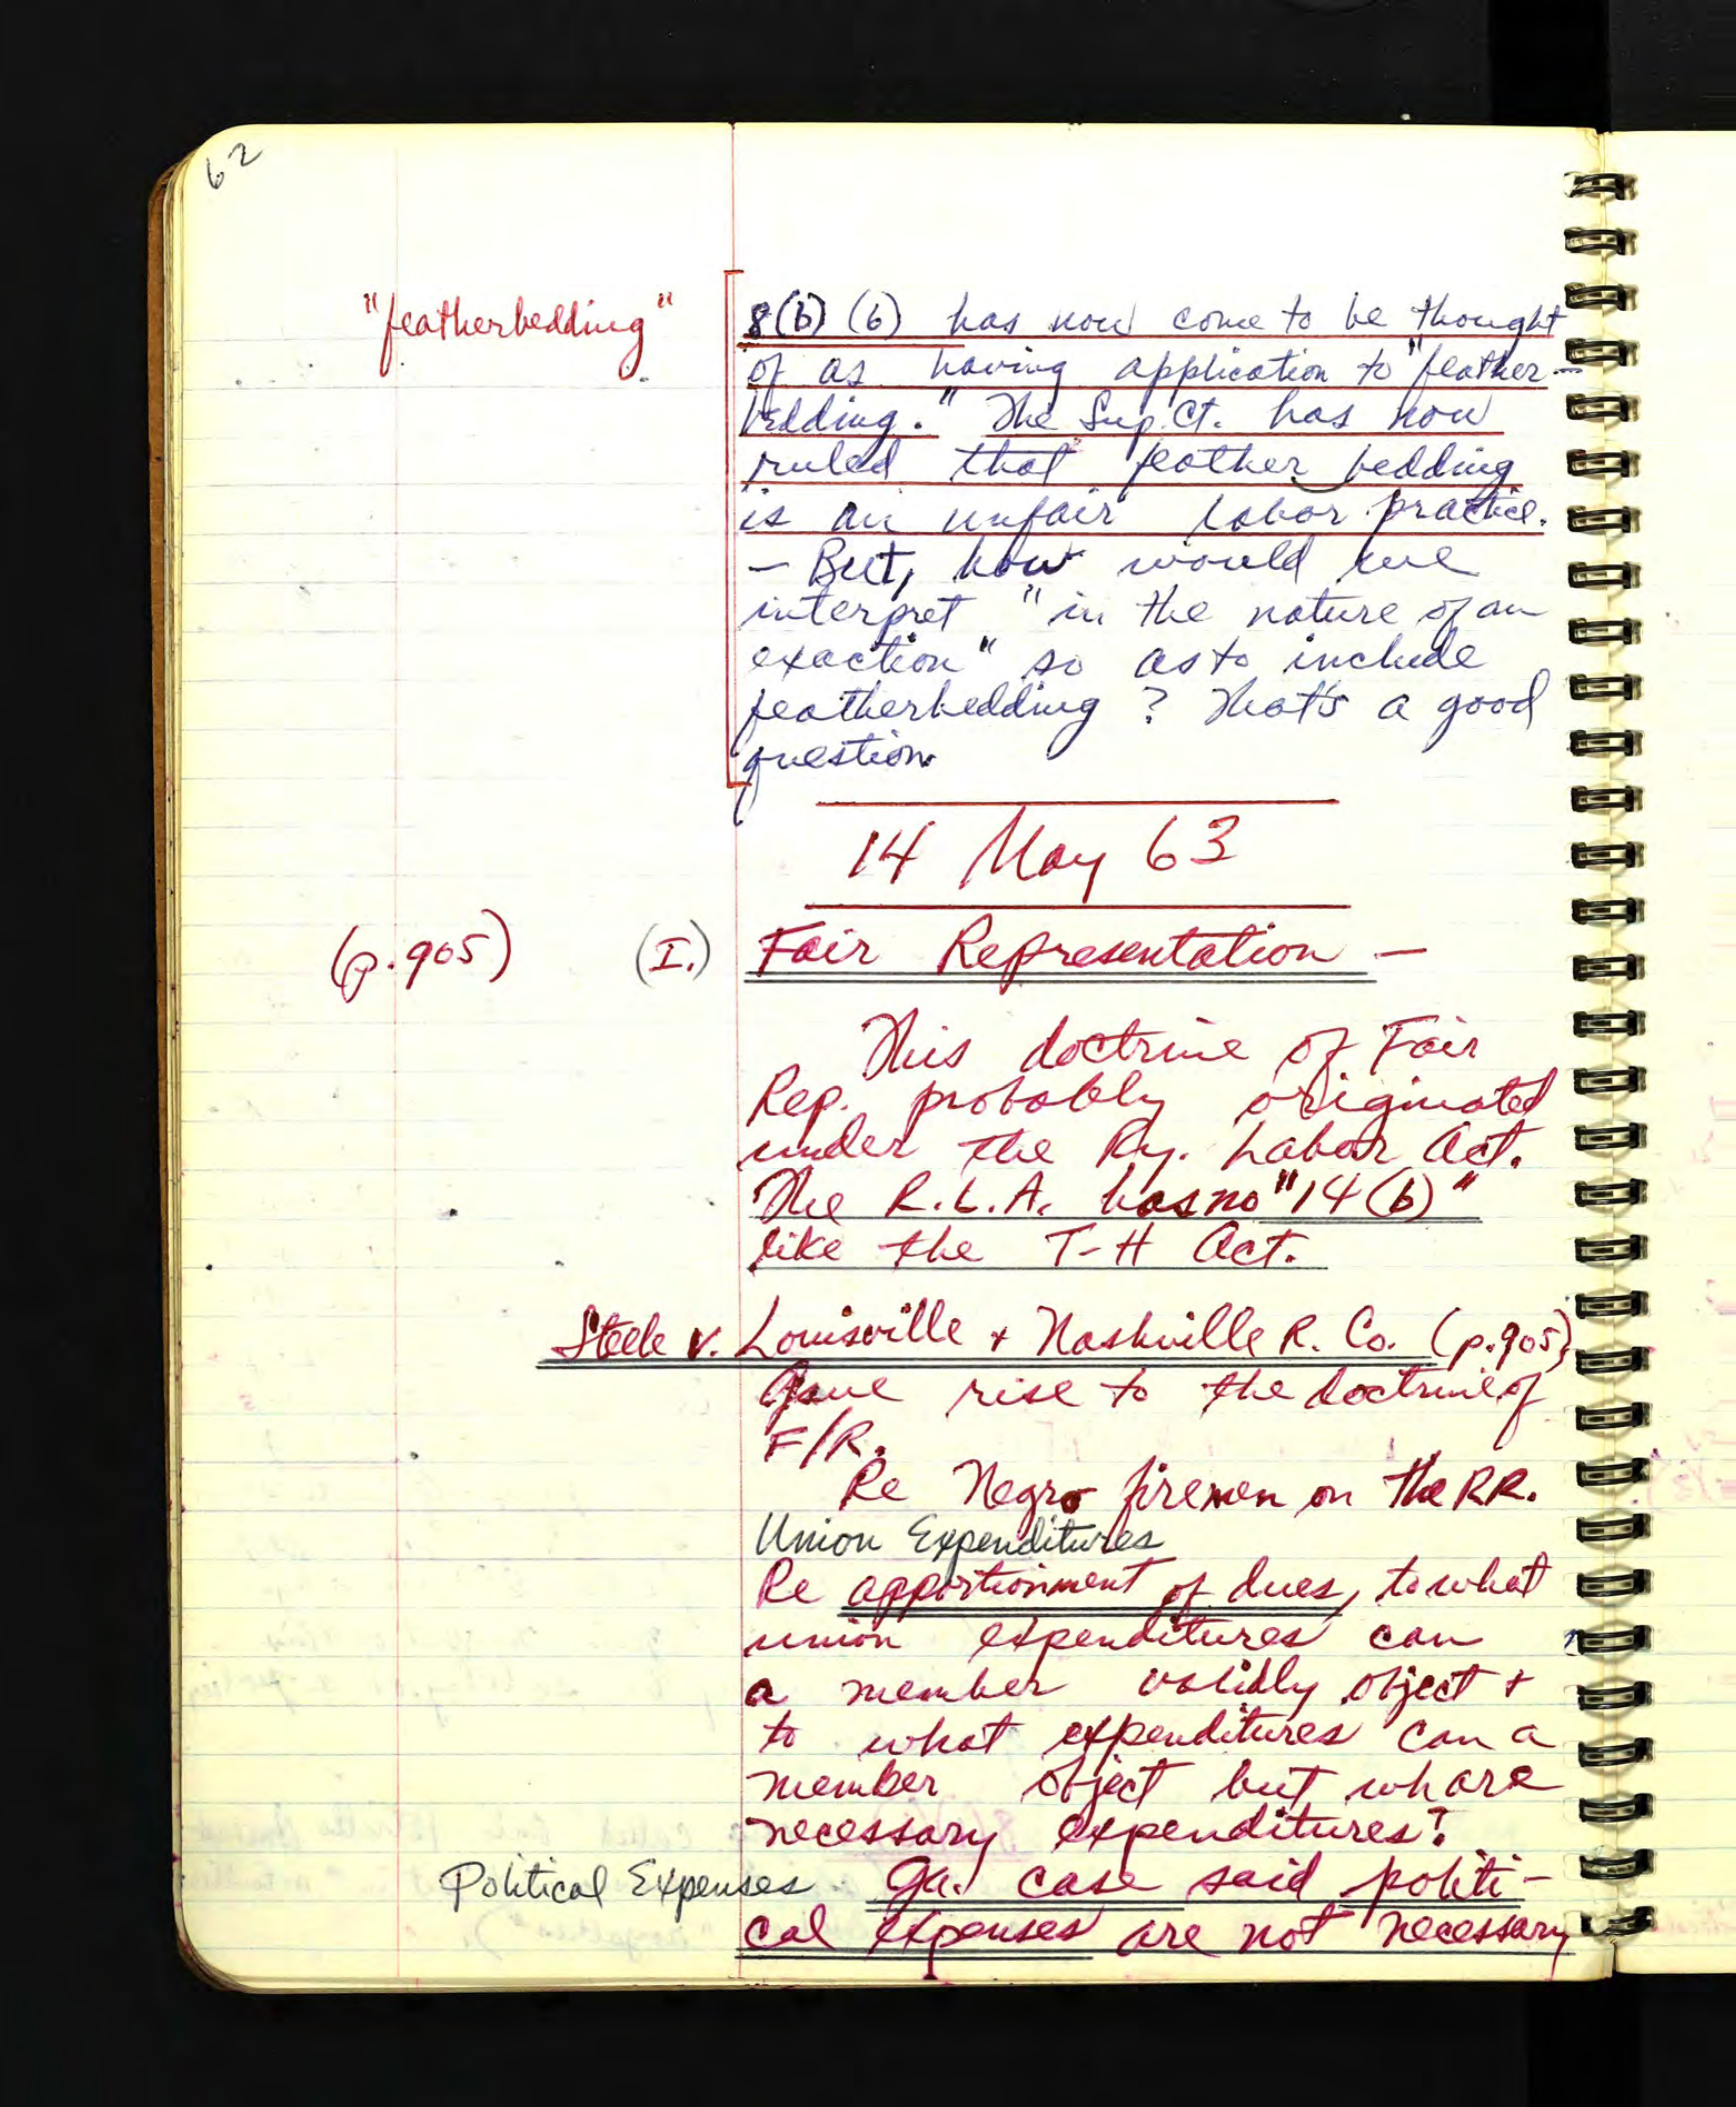 62
"featherbedding"
8(b) (6) has now come to be thought
of as having application to "feather-
bedding." The Sup. Ct. has now
ruled that feather bedding
is an unfair labor practice.
— But, how would we
interpret "in the nature of an
exaction" so as to include
featherbedding? That's a good
question.
14 May 63
(p.905) (I.) Fair Representation —
This doctrine of Fair
Rep. probably originated
under the Ry. Labor Act.
The R.L.A. has no "14(b)"
like the T-H Act.
Steele v. Louisville + Nashville R. Co. (p.905),
Gave rise to the doctrine of
F/R.
Re Negro firemen on the RR.
Union Expenditures
Re apportionment of dues, to what
union expenditures can
a member validly object +
to what expenditures can a
member object but which are
necessary expenditures?
Political Expenses Ga. case said politi-
cal expenses are not necessary